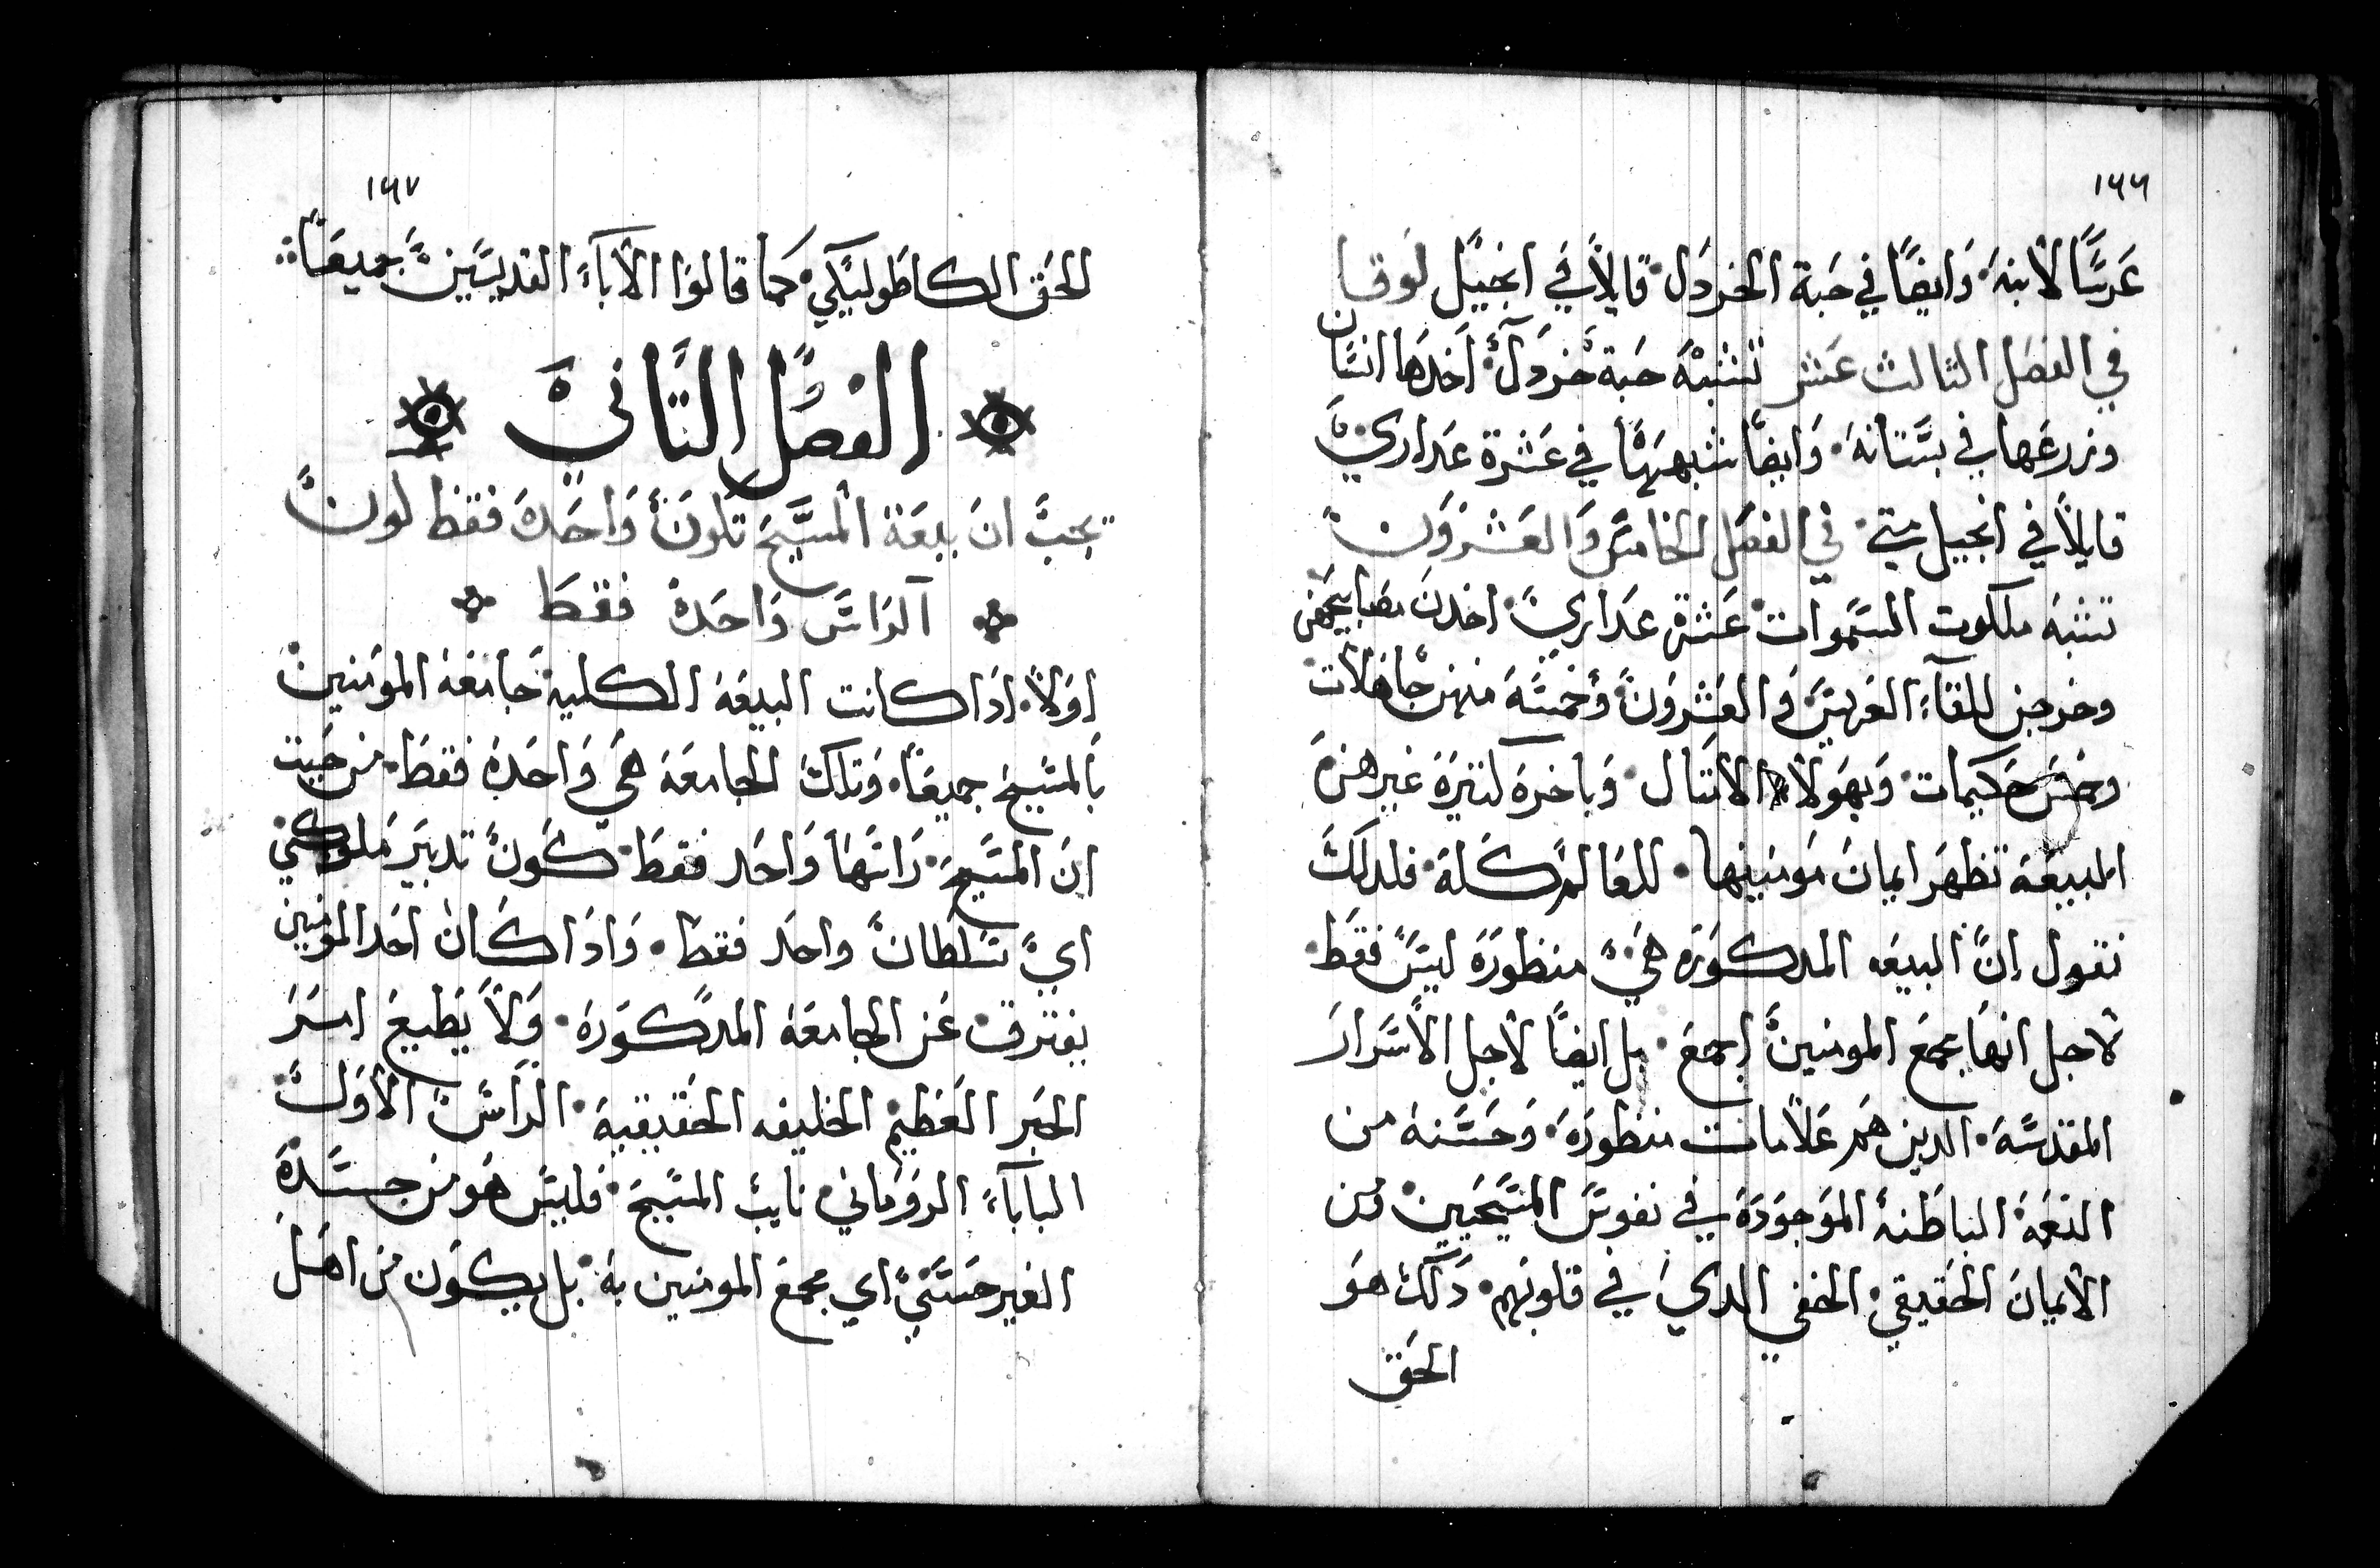 ١٦٦
عَرسًا لابنهَ. وَايضًا في حَبة الخردَل. قايلاً في انجيل لوقا
في الفصَل الثالث عَشر تشبهْ حَبة خردَل. اَخدهَا انسَان
وزرعَها في بسَّتانهَ. وَايضًا شبههَا في عَشرة عَداري
قايلاً في انجيل متي. في الفصَل الخامسَ وَالعَشرَون
تشبهَ ملكوت السَّموات عَشرة عَداري. اخدنَ مصَابيحَهن
وخرجن للقآء العَريسَ وَ العَشرَون وَخمسَة منهن جَاهَلات
وخمسَ حَكيمات. وَبهَولاء الامتال. وَباخرَه كتيرَة غيرهنَ
البيعَة تظهَر ايمانَ مَومنينها. للعَالم كَله. فلدلكَ
نقول انَّ البيعَه المدكوَره هَي منظورَة ليسَ فقطَ.
لاجل انهَا مجمعَ المومنين اجمعَ. بل ايضًا لاجل الاسَرارَ
المقدسَّة. الدين همَ عَلامات منظورَة. وَحَسَّنه من
النعَمَة الباطَنة الموَجوَدَة في نفوسَ المسَّيحَيين. وَمن
الايمانَ الحَقيقي. الخفي الدي في قلوبَهم. دَلكَ هوَ
الحَق
١٦٧
الحَق الكاطَوليكي. كَما قالوَا الاَباء القديسَّين جميعَا
الفصَل التَّاني
يجبَ انَ بيعَة المسَّيحَ تكونَ وَاحَدة فقطَ لون
الرَاسَ وَاحَدة فقطَ
اوَلاً. ادَا كانت البيعَة الكليه جَامَعَة الموَمنين
بَالمسَّيحَ جميعَا. وَتلك الجامعَة هَي وَاحَدَة فقطَ. من حَيت
انَ المسَّيحَ. رَاسَهَا وَاحَد فقطَ. كَونَ تدبيَر مَلوكي
اي سَلطانَ واحَد فقطَ. وَادَا كَان احَد المومنين
يفترق عَن الجامعَة المدكوَرة. وَلاَ يَطيعَ اسَرَ
الحَبر العَظيم الخليفه الحَقيقية. الرَاسَ الاوَل
الباباء الرومَاني نايبَ المسَّيحَ. فليسَ هوَ من جسَّدة
الغير حَسَّي اي مجمعَ المومنين بهَ. بل يكوَن من اهَل